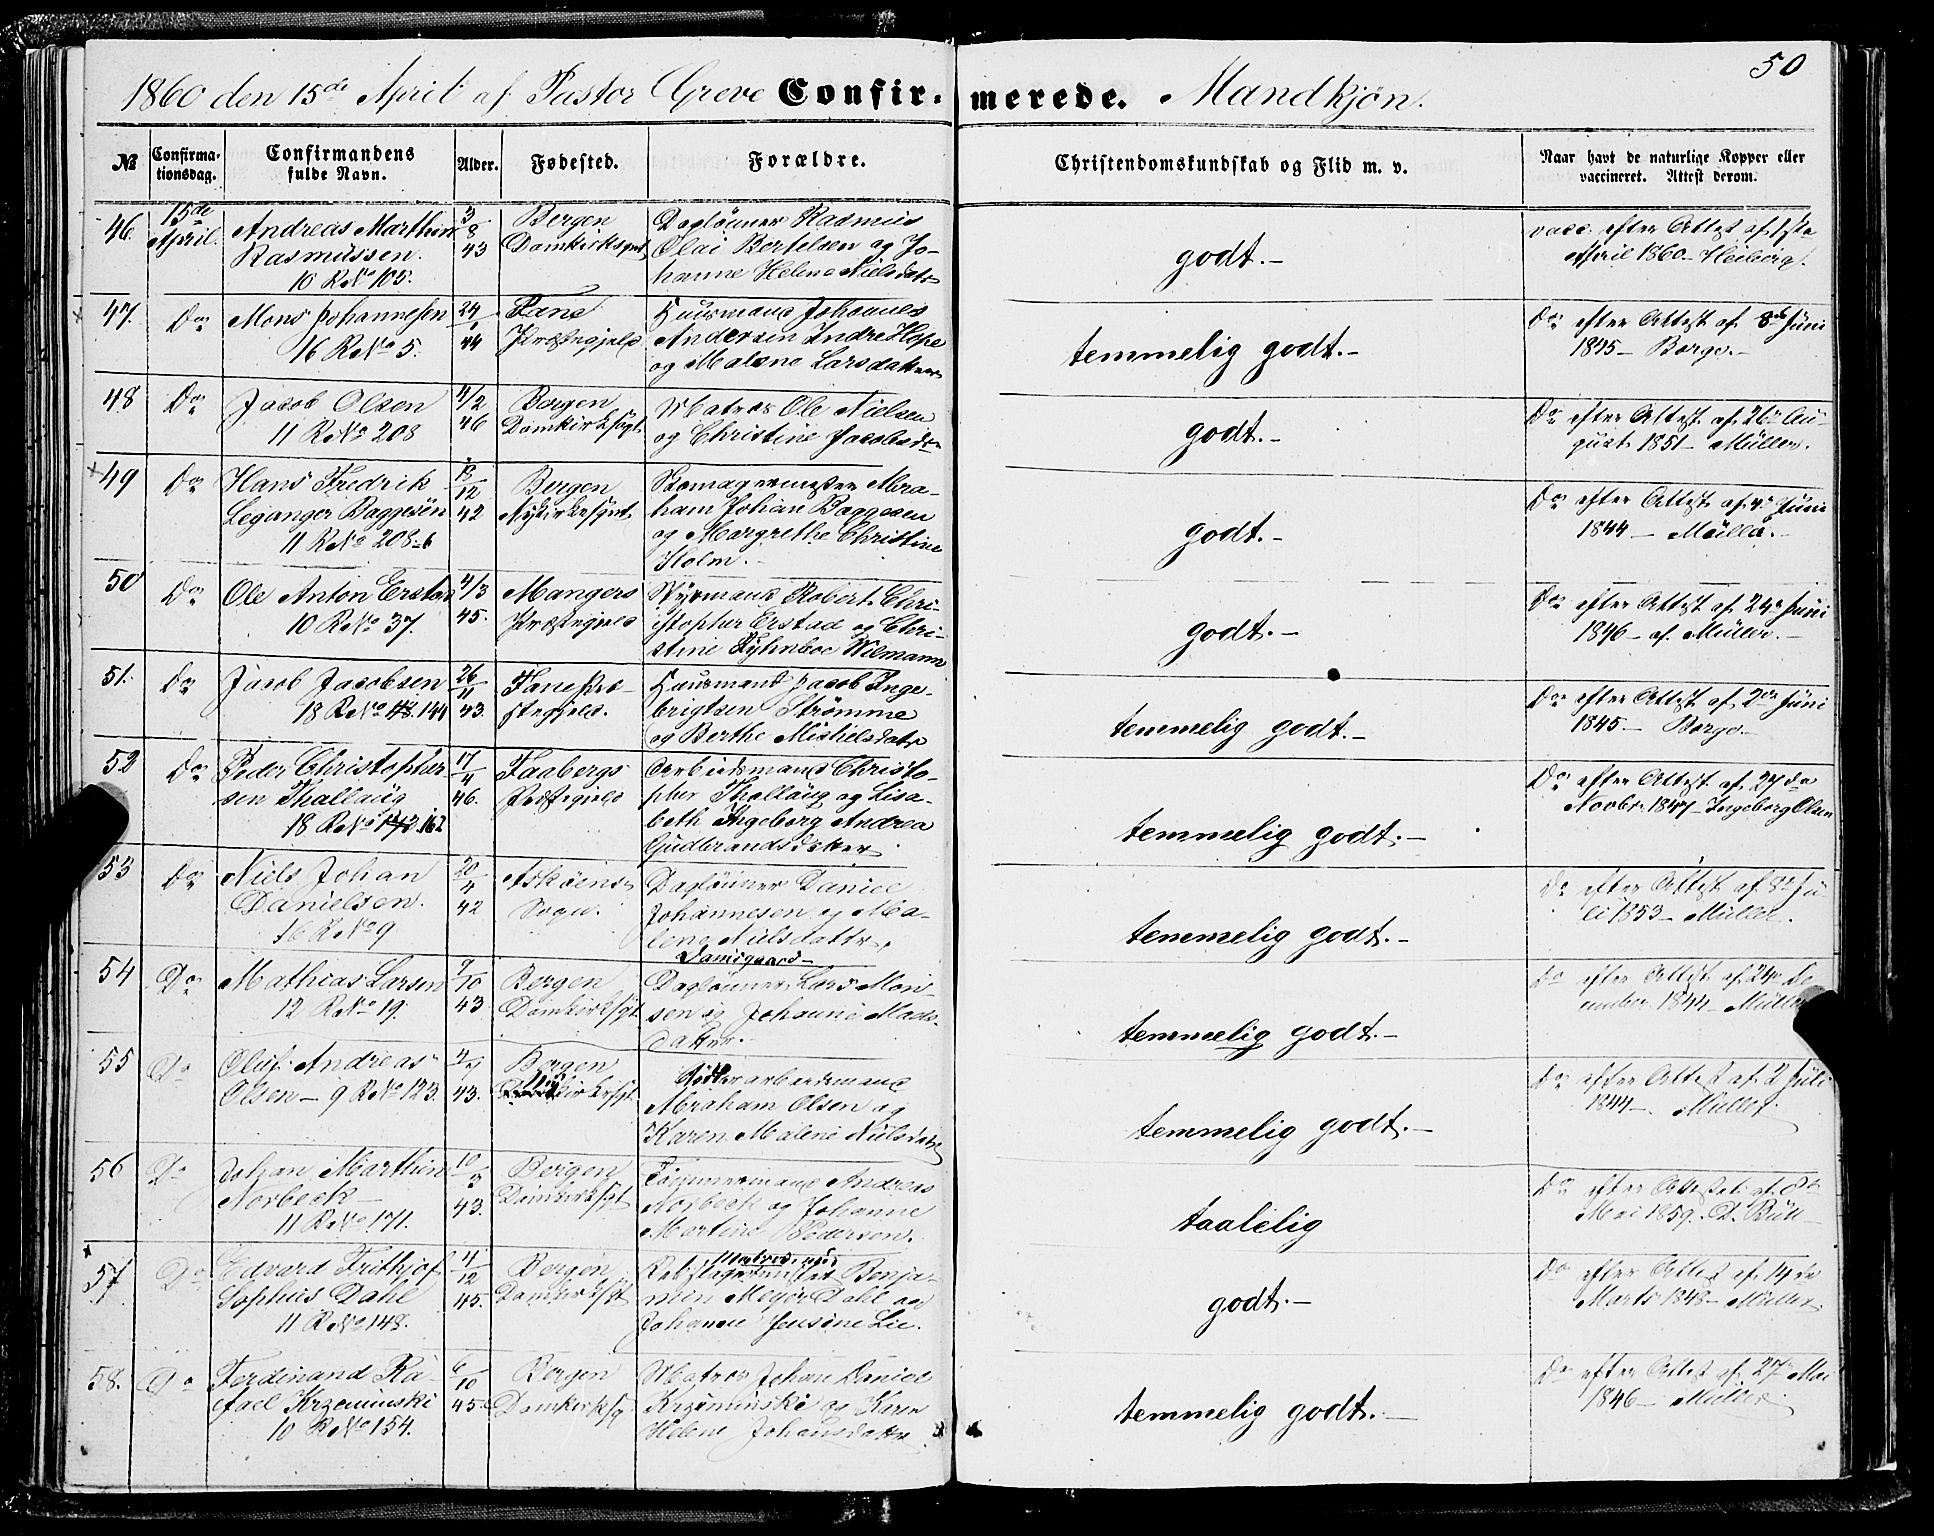 50
1860 den 15de April af Pastor Greve Confirmerede. Mandkjøn.
№ Confirmationsdag. Confirmandens fulde Navn. Alder. Fødested. Forældre. Christendomskundskab og Flid m. v. Naar havt de naturlige Kopper eller vaccineret. Attest derom.
46. 15de April. Andreas Marthin Rasmussen. 10 R No 105. 3/8 43 Bergen Domkirkesgnt Daglønner Rasmus Olai Bertelsen og Johanne Helene Nielsdatr godt.— vacc. efter Attest af April 1860— Heiberg.
47. Do Mons Johannesen 16 R No 5. 24/ 44 Fane Præstegjeld Huusmand Johannes Andersen Indre Hope og Malene Larsdatter temmelig godt.— Do efter Attest af 8de Juni 1845— Borge.—
48 Do Jacob Olsen 11 R No 208 4/2 46 Bergen Domkirksgt. Matros Ole Nielsen og Christine Jacobsdr godt.— Do efter Attest af 26de August 1851— Müller.
49 Do Hans Fredrik Leganger Baggesen 11 R No 208-6 13/12 42 Bergen Nykirkesgnt. Skomagermester Abraham Johan Baggesen og Margrethe Christine Holm.— godt.— Do efter Attest af Juni 1844— Müller.—
50 Do Ole Anton Erstad 10 R No 37. 4/3 45. Mangers Præstegjeld Styrmand Robert Christopher Erstad og Christine Wilmann godt.— Do efter Attest af 24de Juni 1846— af Müller.—
51. Do Jacob Jacobsen 18 R No 144 26/11 43. Fane Præstegjeld. Huusmand Jacob Ingebrigtsen Strømme og Berthe Michelsdatr temmelig godt.— Do efter Attest af 2den Juni 1845— Borge—
52 Do Peder Christophersen Thallaug 18 R No 162 17/4 46. Faabergs Præstegjeld Arbeidsmand Christopher Thallaug og Lisabeth Ingeborg Andrea Gudbrandsdatter. temmelig godt.— Do efter Attest af 27de Novbr 1847— Ingeborg Olsen
53 Do Niels Johan Danielsen. 16 R No 9 20/4 42 Askøens Sogn. Daglønner Daniel Johannesen og Malene Nielsdattr. Damsgaard— temmelig godt.— Do efter Attest af 8de Juli 1853— Müller.
54 Do Mathias Larsen 12 R No 19. 7/10 43 Bergen Domkirksgt. Daglønner Lars Monsen og Johanne Madsdatter.— temmelig godt.— Do efter Attest af 24de December 1844— Müller
55 Do Oluf Andreas Olsen— 9 R No 123 4/7 43. Bergen kirkesgt. arbeidsmand Abraham Olsen og Karen Malene Nielsdatr temmelig godt.— Do efter Attest af 2 Juli 1844— Müller.
56 Do Johan Marthin Norbeck— 11 R No 171. 10/3 43. Bergen Domkirksgt Tømmermand Andreas Norbeck og Johanne Martine Pedersen. taalelig Do efter Attest af 8de Mai 1859. D. Büll
57 Do Edvard Frithjof Sophus Dahl 11 R No 148. 4/12 45. Bergen Domkirksgt Rebslagermester Benjamin Meyer Dahl og Johanne Jensine Lie. godt.— Do efter Attest af 14de Marts 1848— Müller
58. Do Ferdinand Rafael Krzeminski 10 R No 154. 6/10 45 Bergen Domkirksg Matros Johan Daniel Krzeminski og Karen Helene Johansdattr temmelig godt.— Do efter Attest af 27de Mai 1846— Müller